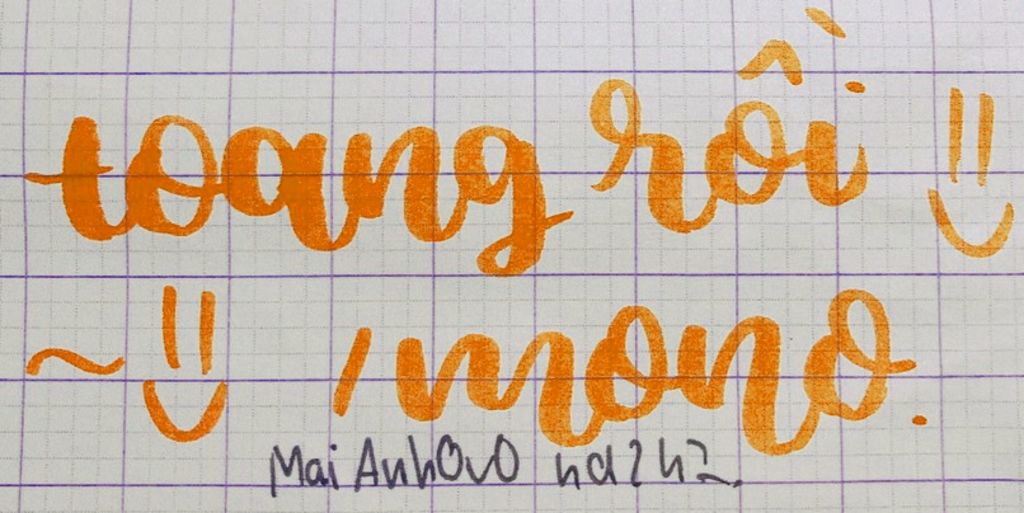 toang rồi
mono.
Mai AnhOvO